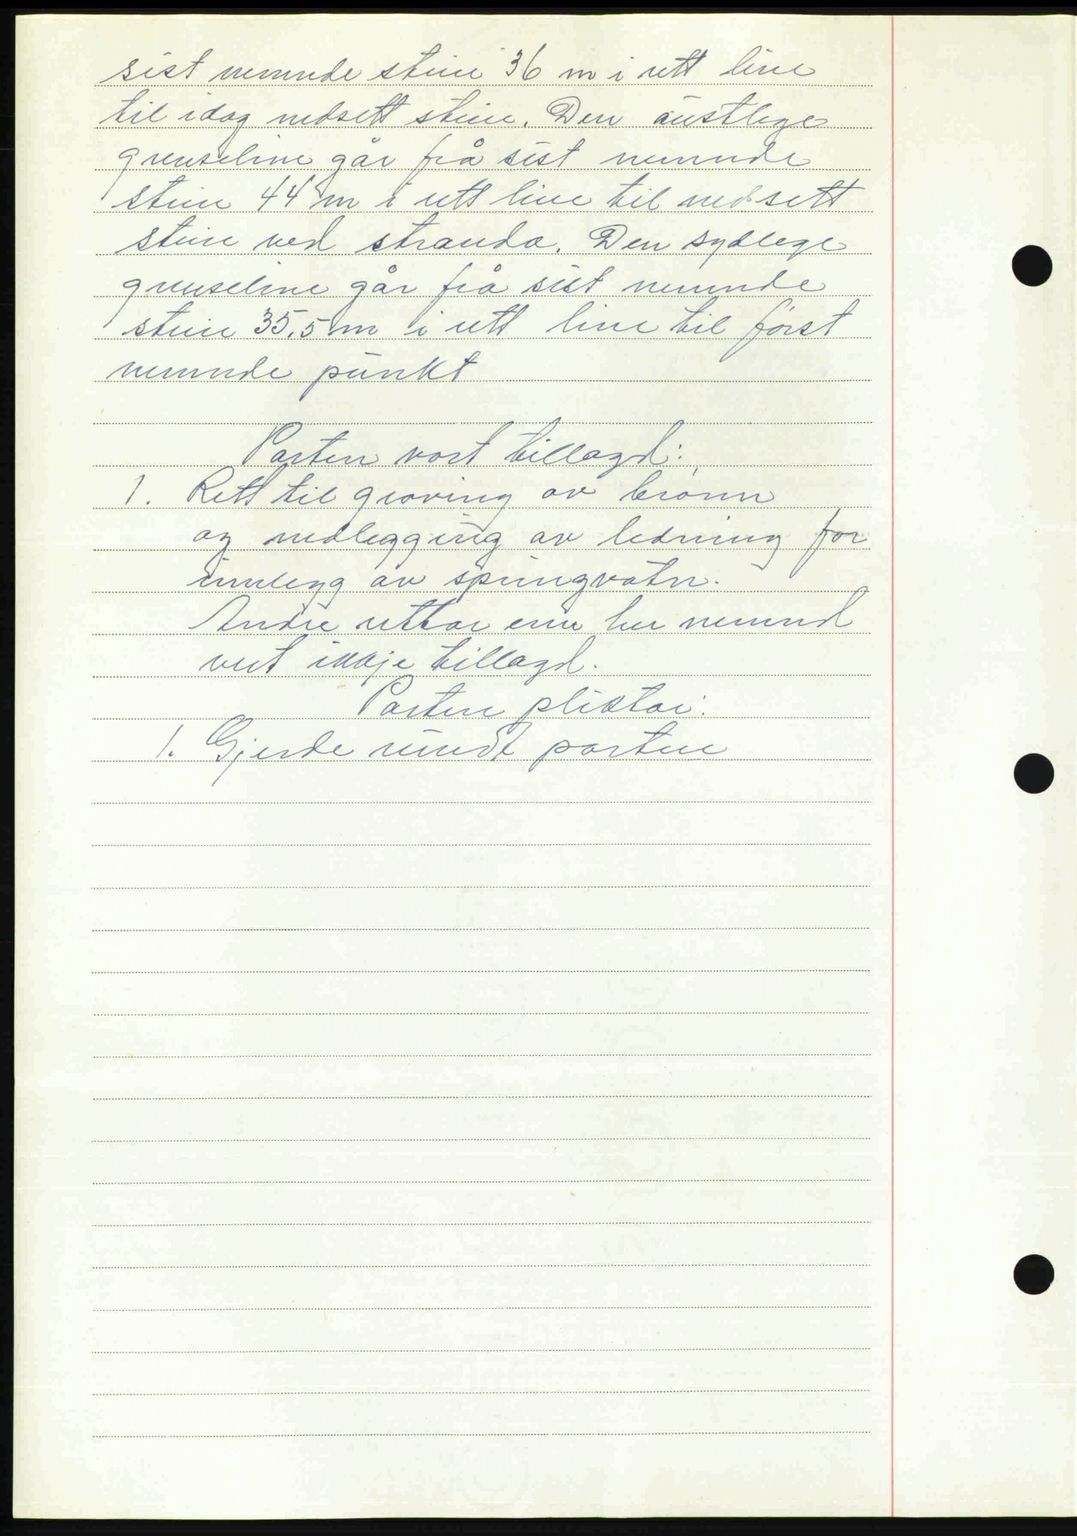 sist nemnde stein 36 m i rett line
til idag nedsett stein. Den austlege
grenseline går frå sist nemnde
stein 44 m i rett line til nedsett
stein ved stranda. Den sydlege
grenseline går frå sist nemnde
stein 35,5 m i rett line til først
nemnde punkt
Parten vert tillagd:
1. Rett til graving av brønn
og nedlegging av ledning for
innlegg av springvatn.
Andre rettar enn her nemnd
vert ikkje tillagd.
Parten pliktar:
1. Gjerde rundt parten